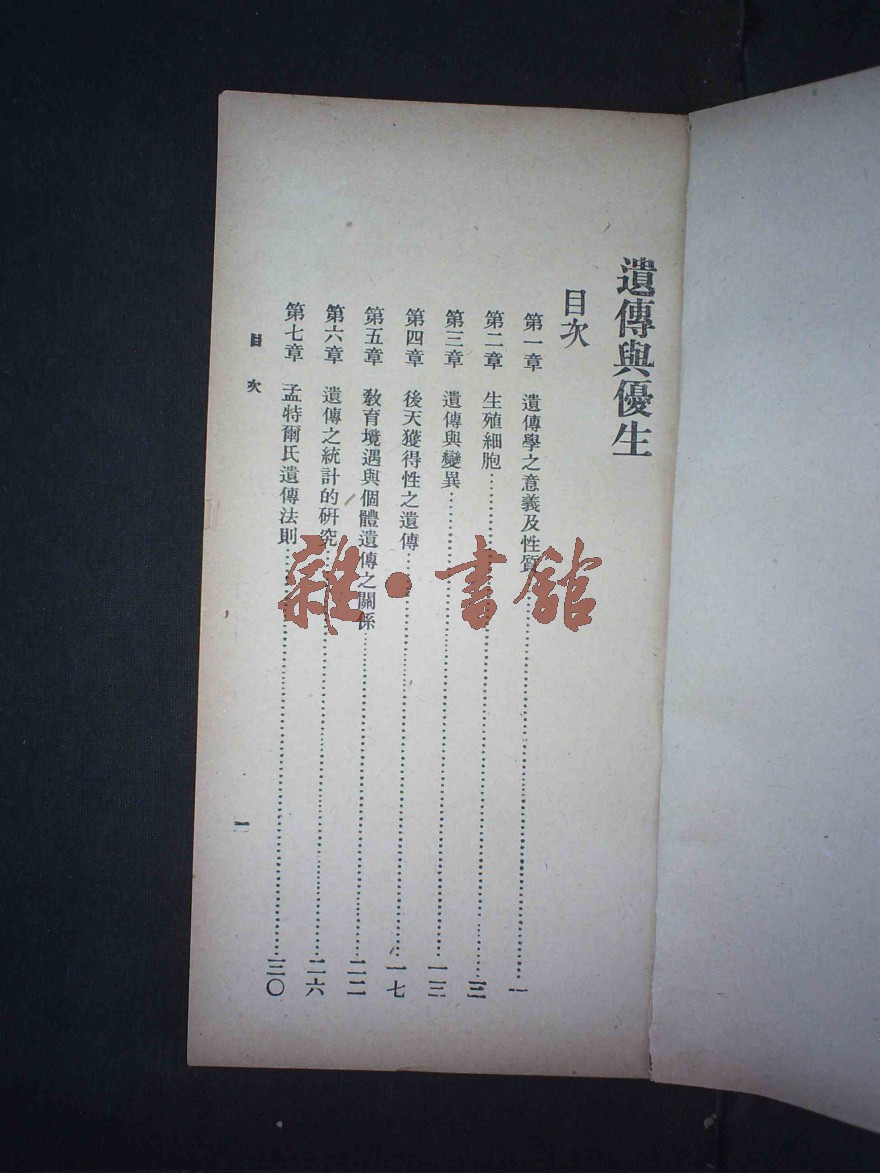 遺傳與優生
目次
第一章 遺傳學之意義及性質……一
第二章 生殖細胞……三
第三章 遺傳與變異……一三
第四章 後天獲得性之遺傳……一七
第五章 教育境遇與個體遺傳之關係……二二
第六章 遺傳之統計的研究……二六
第七章 孟特爾氏遺傳法則……三〇
目次
一
雜·書館